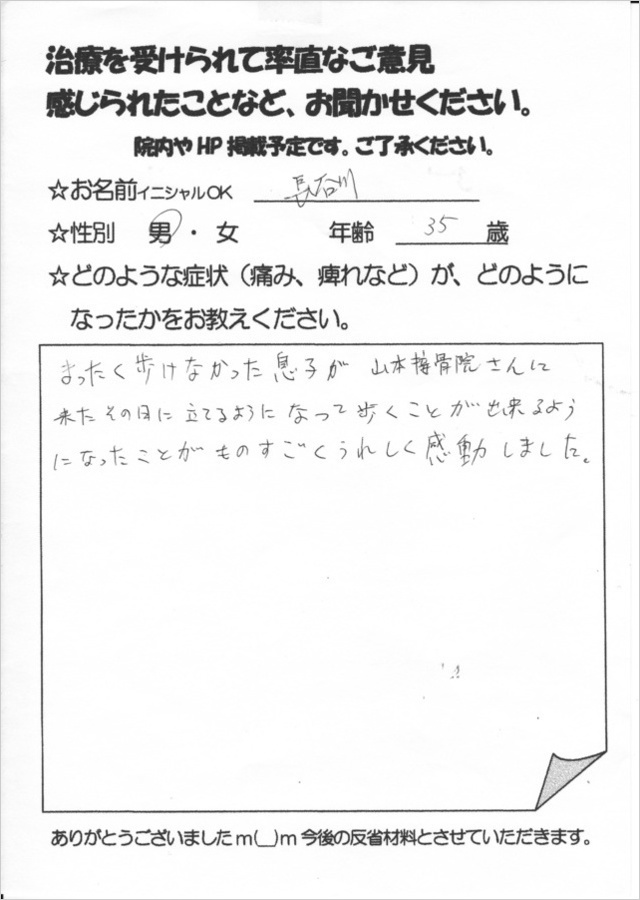 治療を受けられて率直なご意見
感じられたことなど、お聞かせください。
院内やHP掲載予定です。ご了承ください。
☆お名前イニシャルOK 長谷川
☆性別 男・女 年齢 35 歳
☆どのような症状（痛み、痺れなど）が、どのように
なったかをお教えください。
まったく歩けなかった息子が 山本接骨院さんに
来たその日に立てるようになって歩くことが出来るよう
になったことがものすごくうれしく感動しました。
ありがとうございましたm(__)m今後の反省材料とさせていただきます。